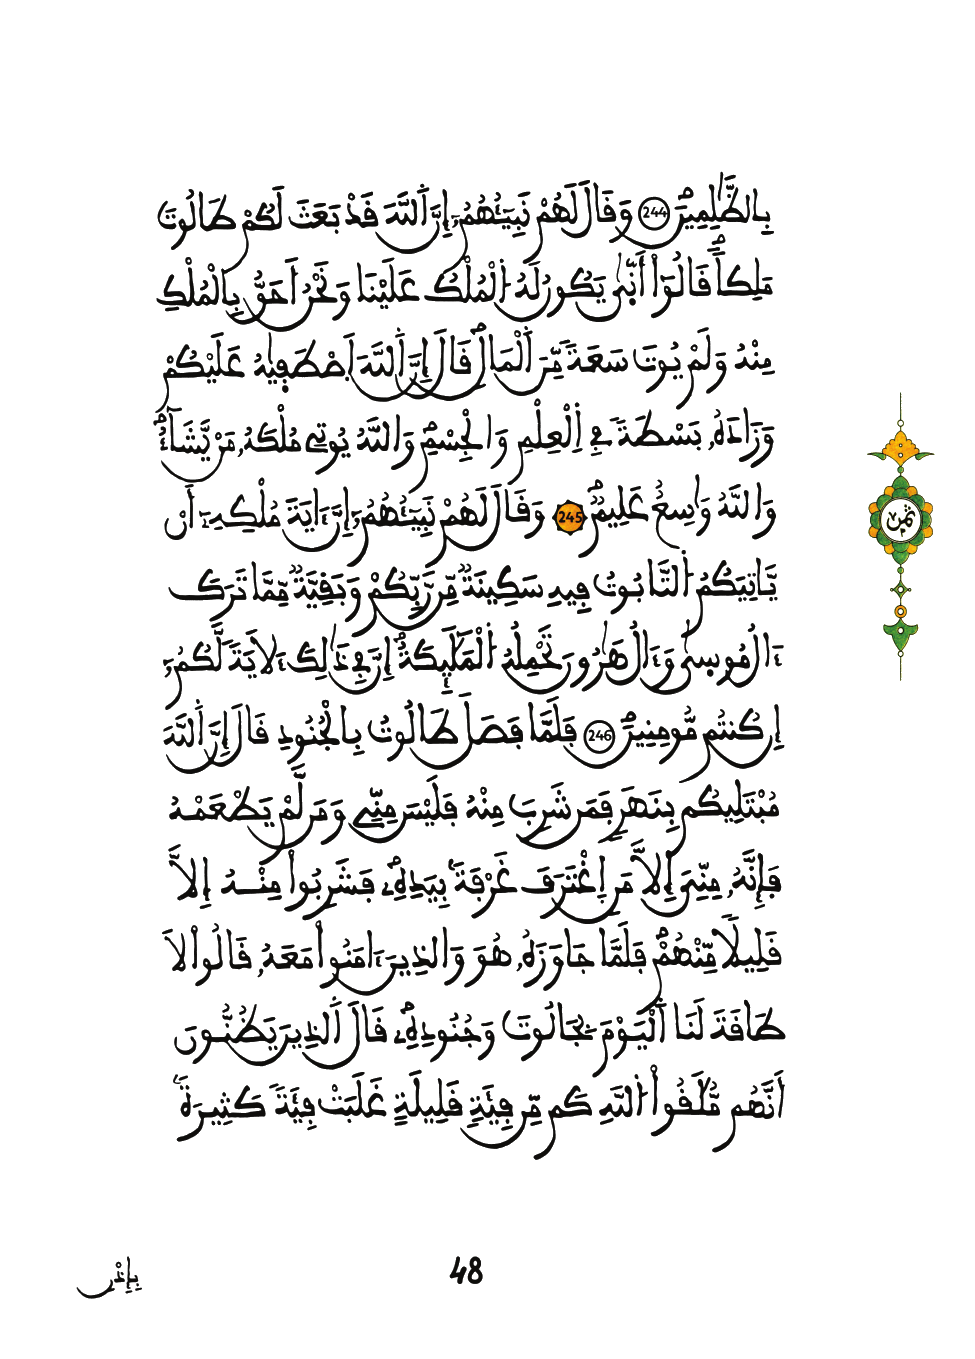 بِالظَّٰلِمِينَ 244 وَقَالَ لَهُمْ نَبِيٓـُٔهُمُۥٓ إِنَّ اَ۬للَّهَ قَدْ بَعَثَ لَكُمْ طَالُوتَ
مَلِكاٗ قَالُوٓاْ أَنّ۪يٰ يَكُونُ لَهُ اُ۬لْمُلْكُ عَلَيْنَا وَنَحْنُ أَحَقُّ بِالْمُلْكِ
مِنْهُ وَلَمْ يُوتَ سَعَةٗ مِّنَ اَ۬لْمَالِۖ قَالَ إِنَّ اَ۬للَّهَ اَ۪صْطَف۪يٰهُ عَلَيْكُمْ
وَزَادَهُۥ بَسْطَةٗ فِے اِ۬لْعِلْمِ وَالْجِسْمِۖ وَاللَّهُ يُوتِے مُلْكَهُۥ مَنْ يَّشَآءُۖ
وَاللَّهُ وَٰسِعٌ عَلِيمٞۖ 245 وَقَالَ لَهُمْ نَبِيٓـُٔهُمُۥٓ إِنَّ ءَايَةَ مُلْكِهِۦٓ أَنْ
يَّاتِيَكُمُ اُ۬لتَّابُوتُ فِيهِ سَكِينَةٞ مِّن رَّبِّكُمْ وَبَقِيَّةٞ مِّمَّا تَرَكَ
ءَالُ مُوس۪يٰ وَءَالُ هَٰرُونَ تَحْمِلُهُ اُ۬لْمَلَٰٓئِكَةُۖ إِنَّ فِے ذَٰلِكَ ءَلَايَةٗ لَّكُمُۥٓ
إِن كُنتُم مُّومِنِينَۖ 246 فَلَمَّا فَصَلَ طَالُوتُ بِالْجُنُودِ قَالَ إِنَّ اَ۬للَّهَ
مُبْتَلِيكُم بِنَهَرٖ فَمَن شَرِبَ مِنْهُ فَلَيْسَ مِنِّے وَمَن لَّمْ يَطْعَمْهُ
فَإِنَّهُۥ مِنِّيَ إِلَّا مَنِ اِ۪غْتَرَفَ غَرْفَةَۢ بِيَدِهِۦۖ فَشَرِبُواْ مِنْهُ إِلَّا
قَلِيلاٗ مِّنْهُمْۖ فَلَمَّا جَاوَزَهُۥ هُوَ وَالذِينَ ءَامَنُواْ مَعَهُۥ قَالُواْ لَا
طَاقَةَ لَنَا اَ۬لْيَوْمَ بِجَالُوتَ وَجُنُودِهِۦۖ قَالَ اَ۬لذِينَ يَظُنُّونَ
أَنَّهُم مُّلَٰقُواْ اُ۬للَّهِ كَم مِّن فِئَةٖ قَلِيلَةٍ غَلَبَتْ فِئَةٗ كَثِيرَةَۢ
ثمن
بِإِذْنِ
48